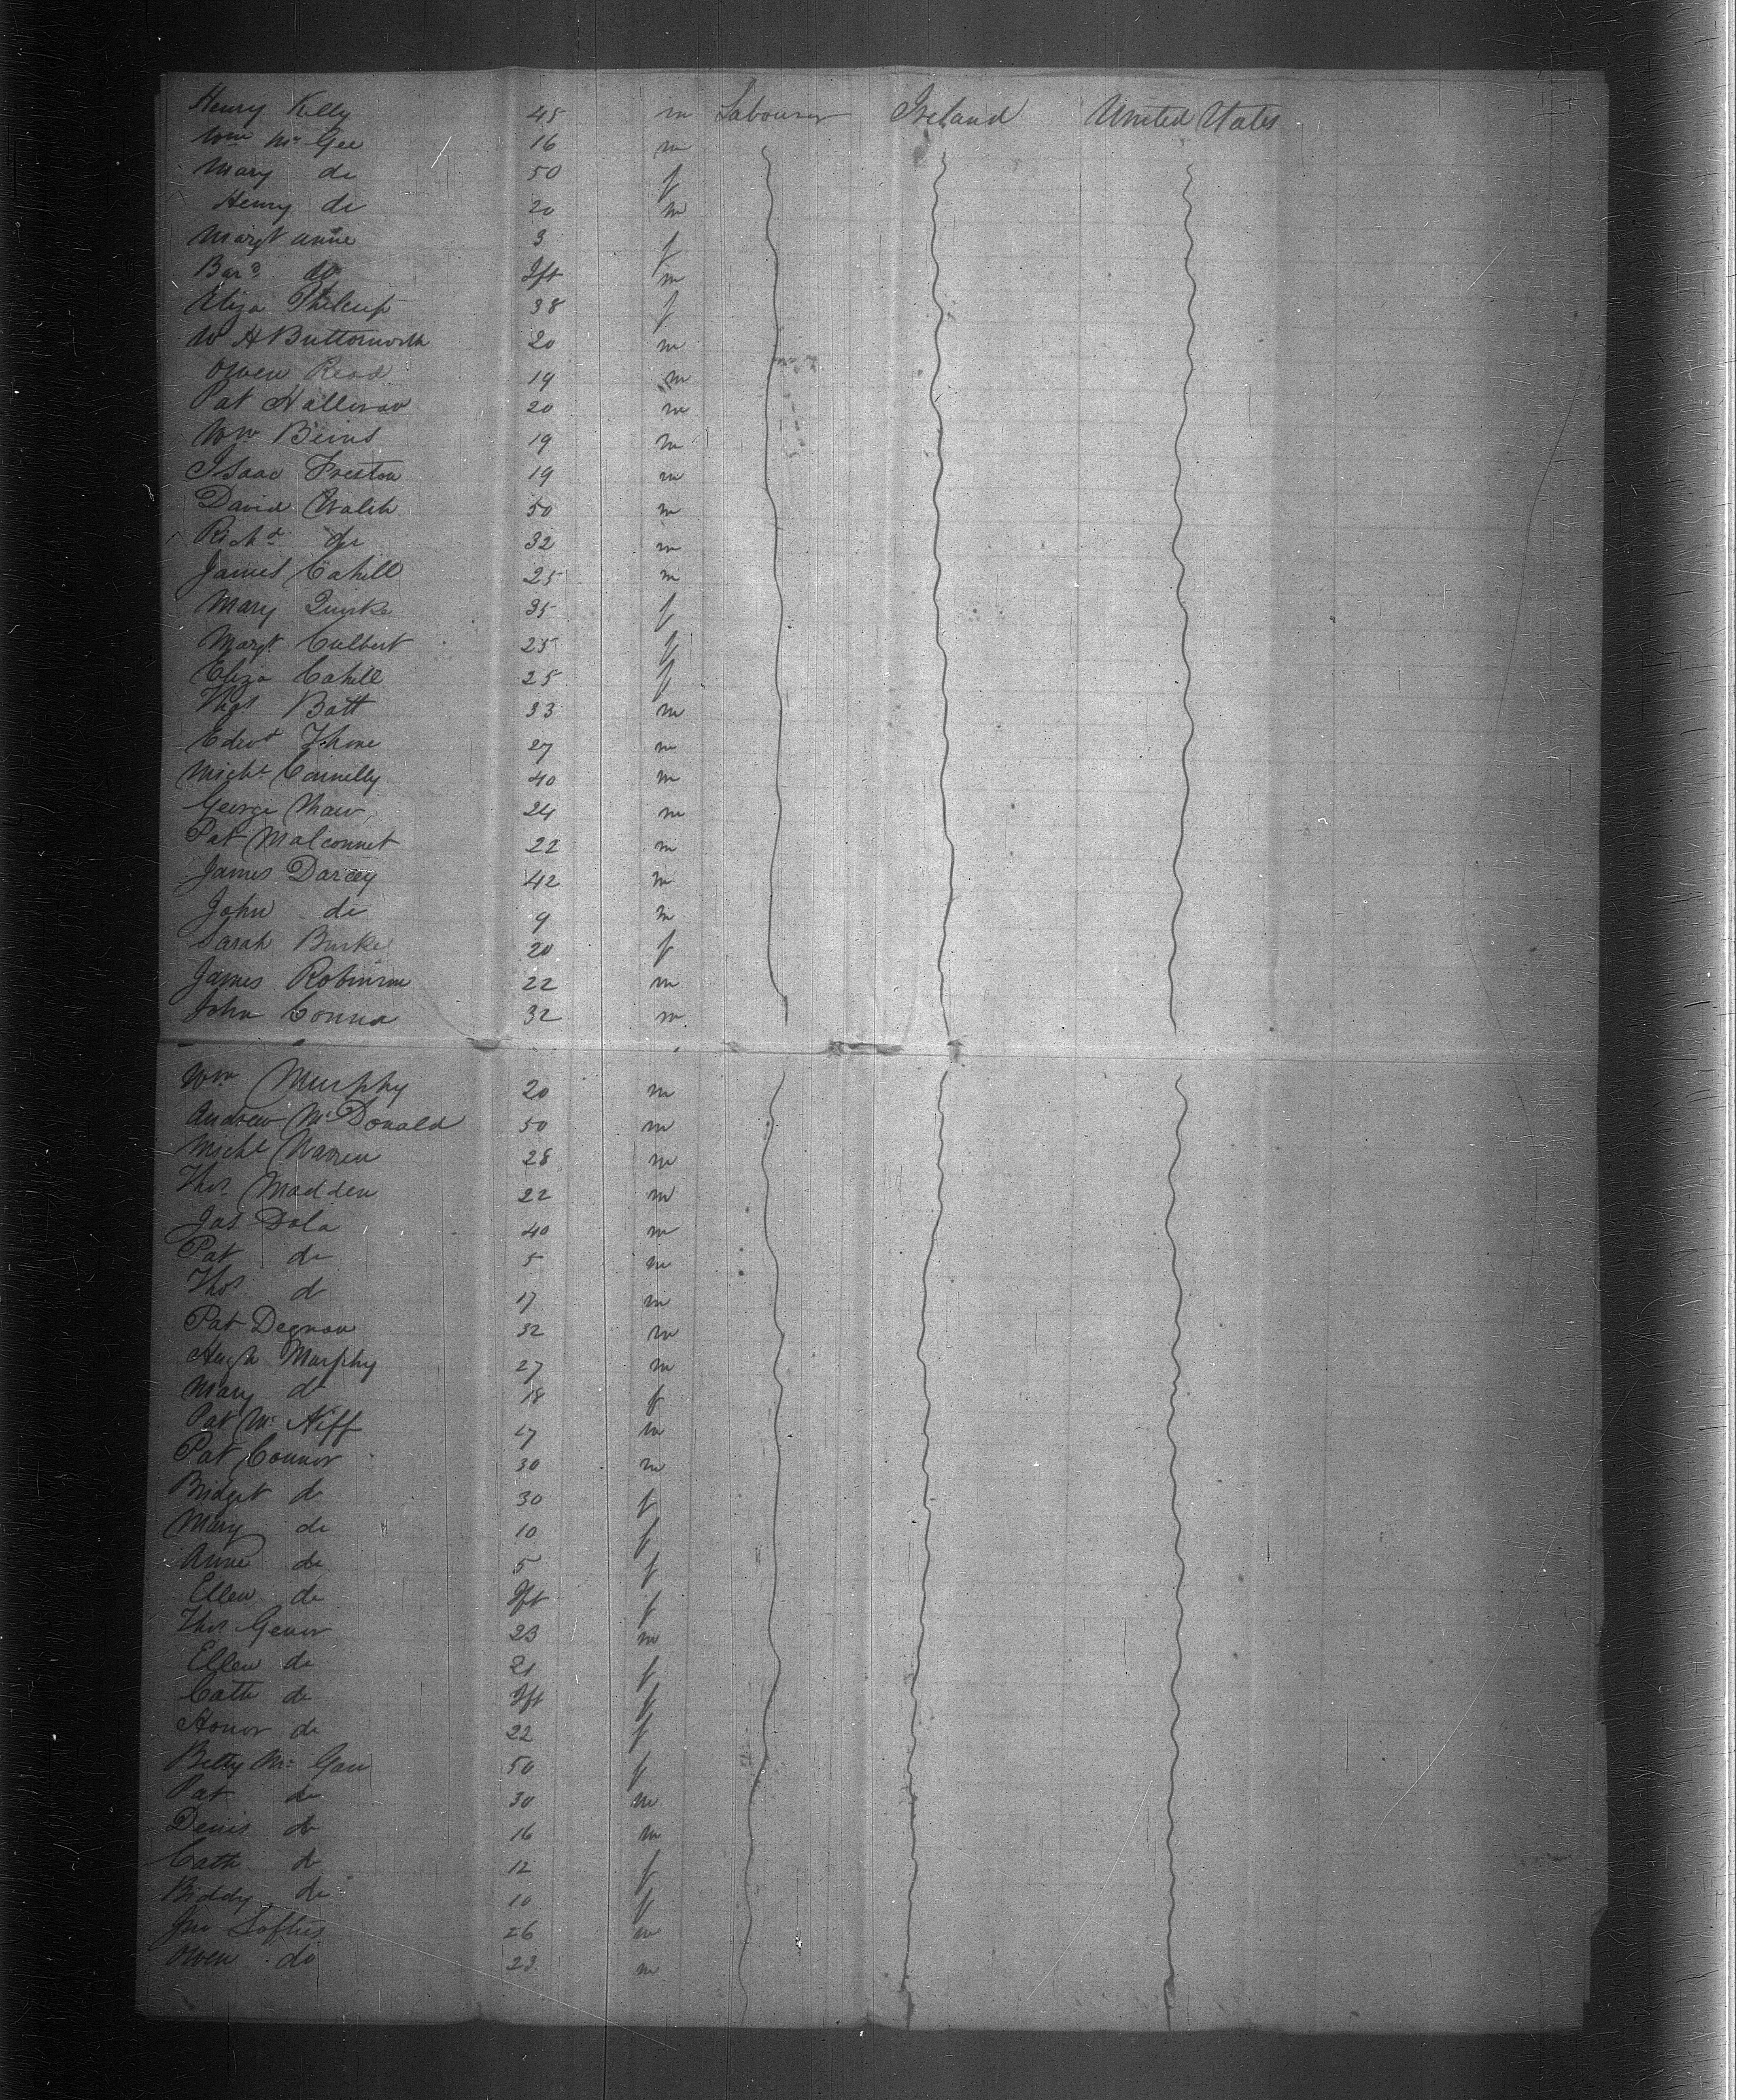 Henry Kelly 45 m Labourer Ireland United States
Wm Mc Gee 16 m
Mary do 50 f
Henry do 20 m
Margt Anne 3 f
Bard do Ift m
Eliza Philcup 38 f
W H Butterworth 20 m
Owen Read 19 m
Pat Halloran 20 m
Wm Beins 19 m
Isaac Freston 19 m
David Walsh 50 m
Richd do 32 m
James Cahill 25 m
Mary Quirke 35 f
Margt Culbert 25 f
Eliza Cahill 25 f
Thos Batt 33 m
Edwd Thone 27 m
Michl Connelly 40 m
George Shaw 24 m
Pat Malconnet 22 m
James Darcey 42 m
John do 9 m
Sarah Burke 20 f
James Robinson 22 m
John Conna 32 m
Wm Murphy 20 m
Andrew McDonald 50 m
Michl Warren 28 m
Thos Madden 22 m
Jas Dola 40 m
Pat do 5 m
Thos do 17 m
Pat Degnan 32 m
Hugh Murphy 27 m
Mary do 18 f
Pat Mc Niff 17 m
Pat Connor 30 m
Bridget do 30 f
Mary do 10 f
Anne do 5 f
Ellen do Ift f
Thos Genor 23 m
Ellen do 21 f
Cath do Ift f
Honor do 22 f
Betty Mc Gan 50 f
Pat do 30 m
Denis do 16 m
Cath do 12 f
Biddy do 10 f
Jno Loftus 26 m
Owen do 23 m